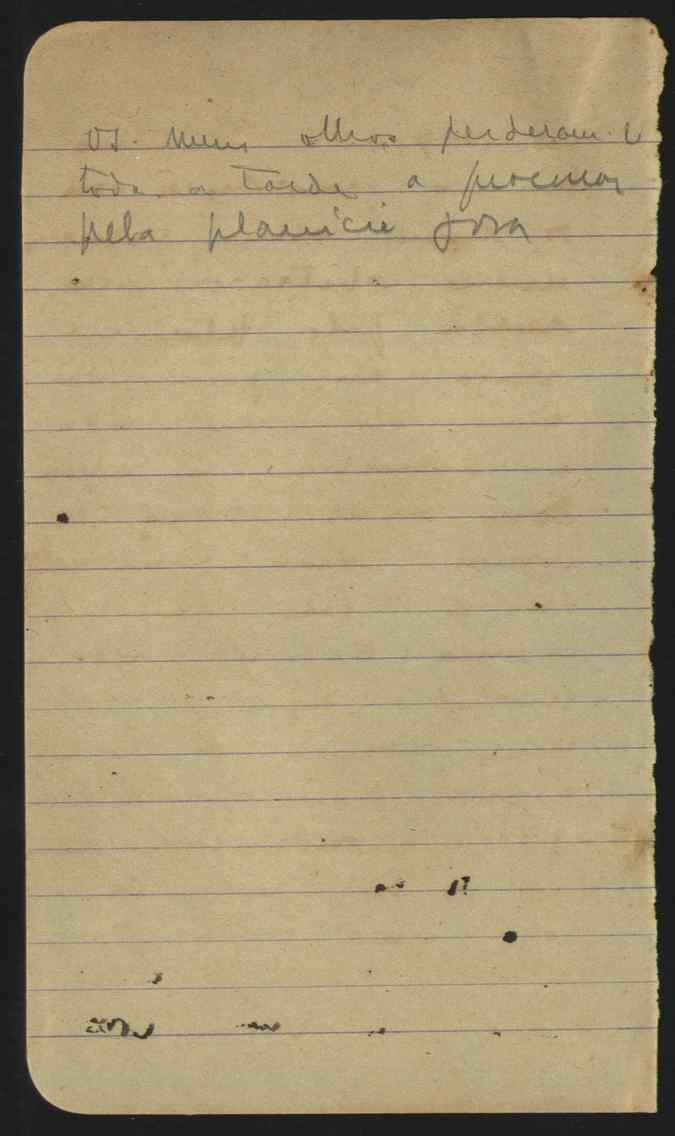 Os meus olhos perderam-se
toda a tarde a procurar
pela planicie fora